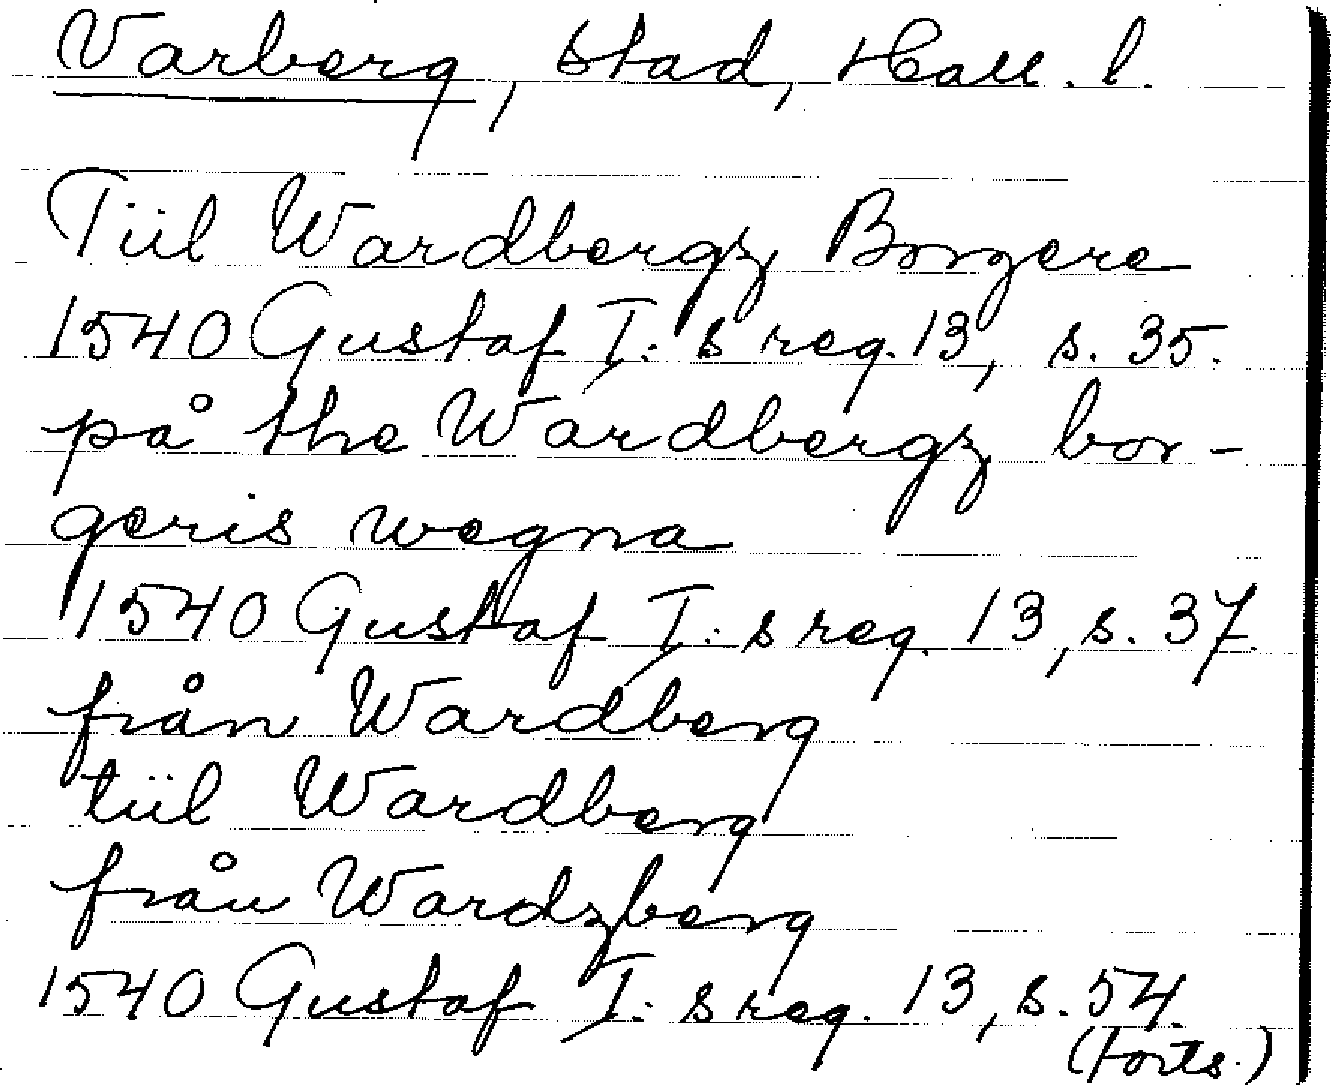 Varberg, stad, Hall. l.
Tiil Wardbergz Borgere
1540 Gustaf I:s reg. 13, s. 35.
på the Wardbergz bor-
geris wegna
1540 Gustaf I:s reg. 13, s. 37.
från Wardberg
tiil Wardberg
från Wardzberg
1540 Gustaf I:s reg. 13, s. 54.
(Forts.)